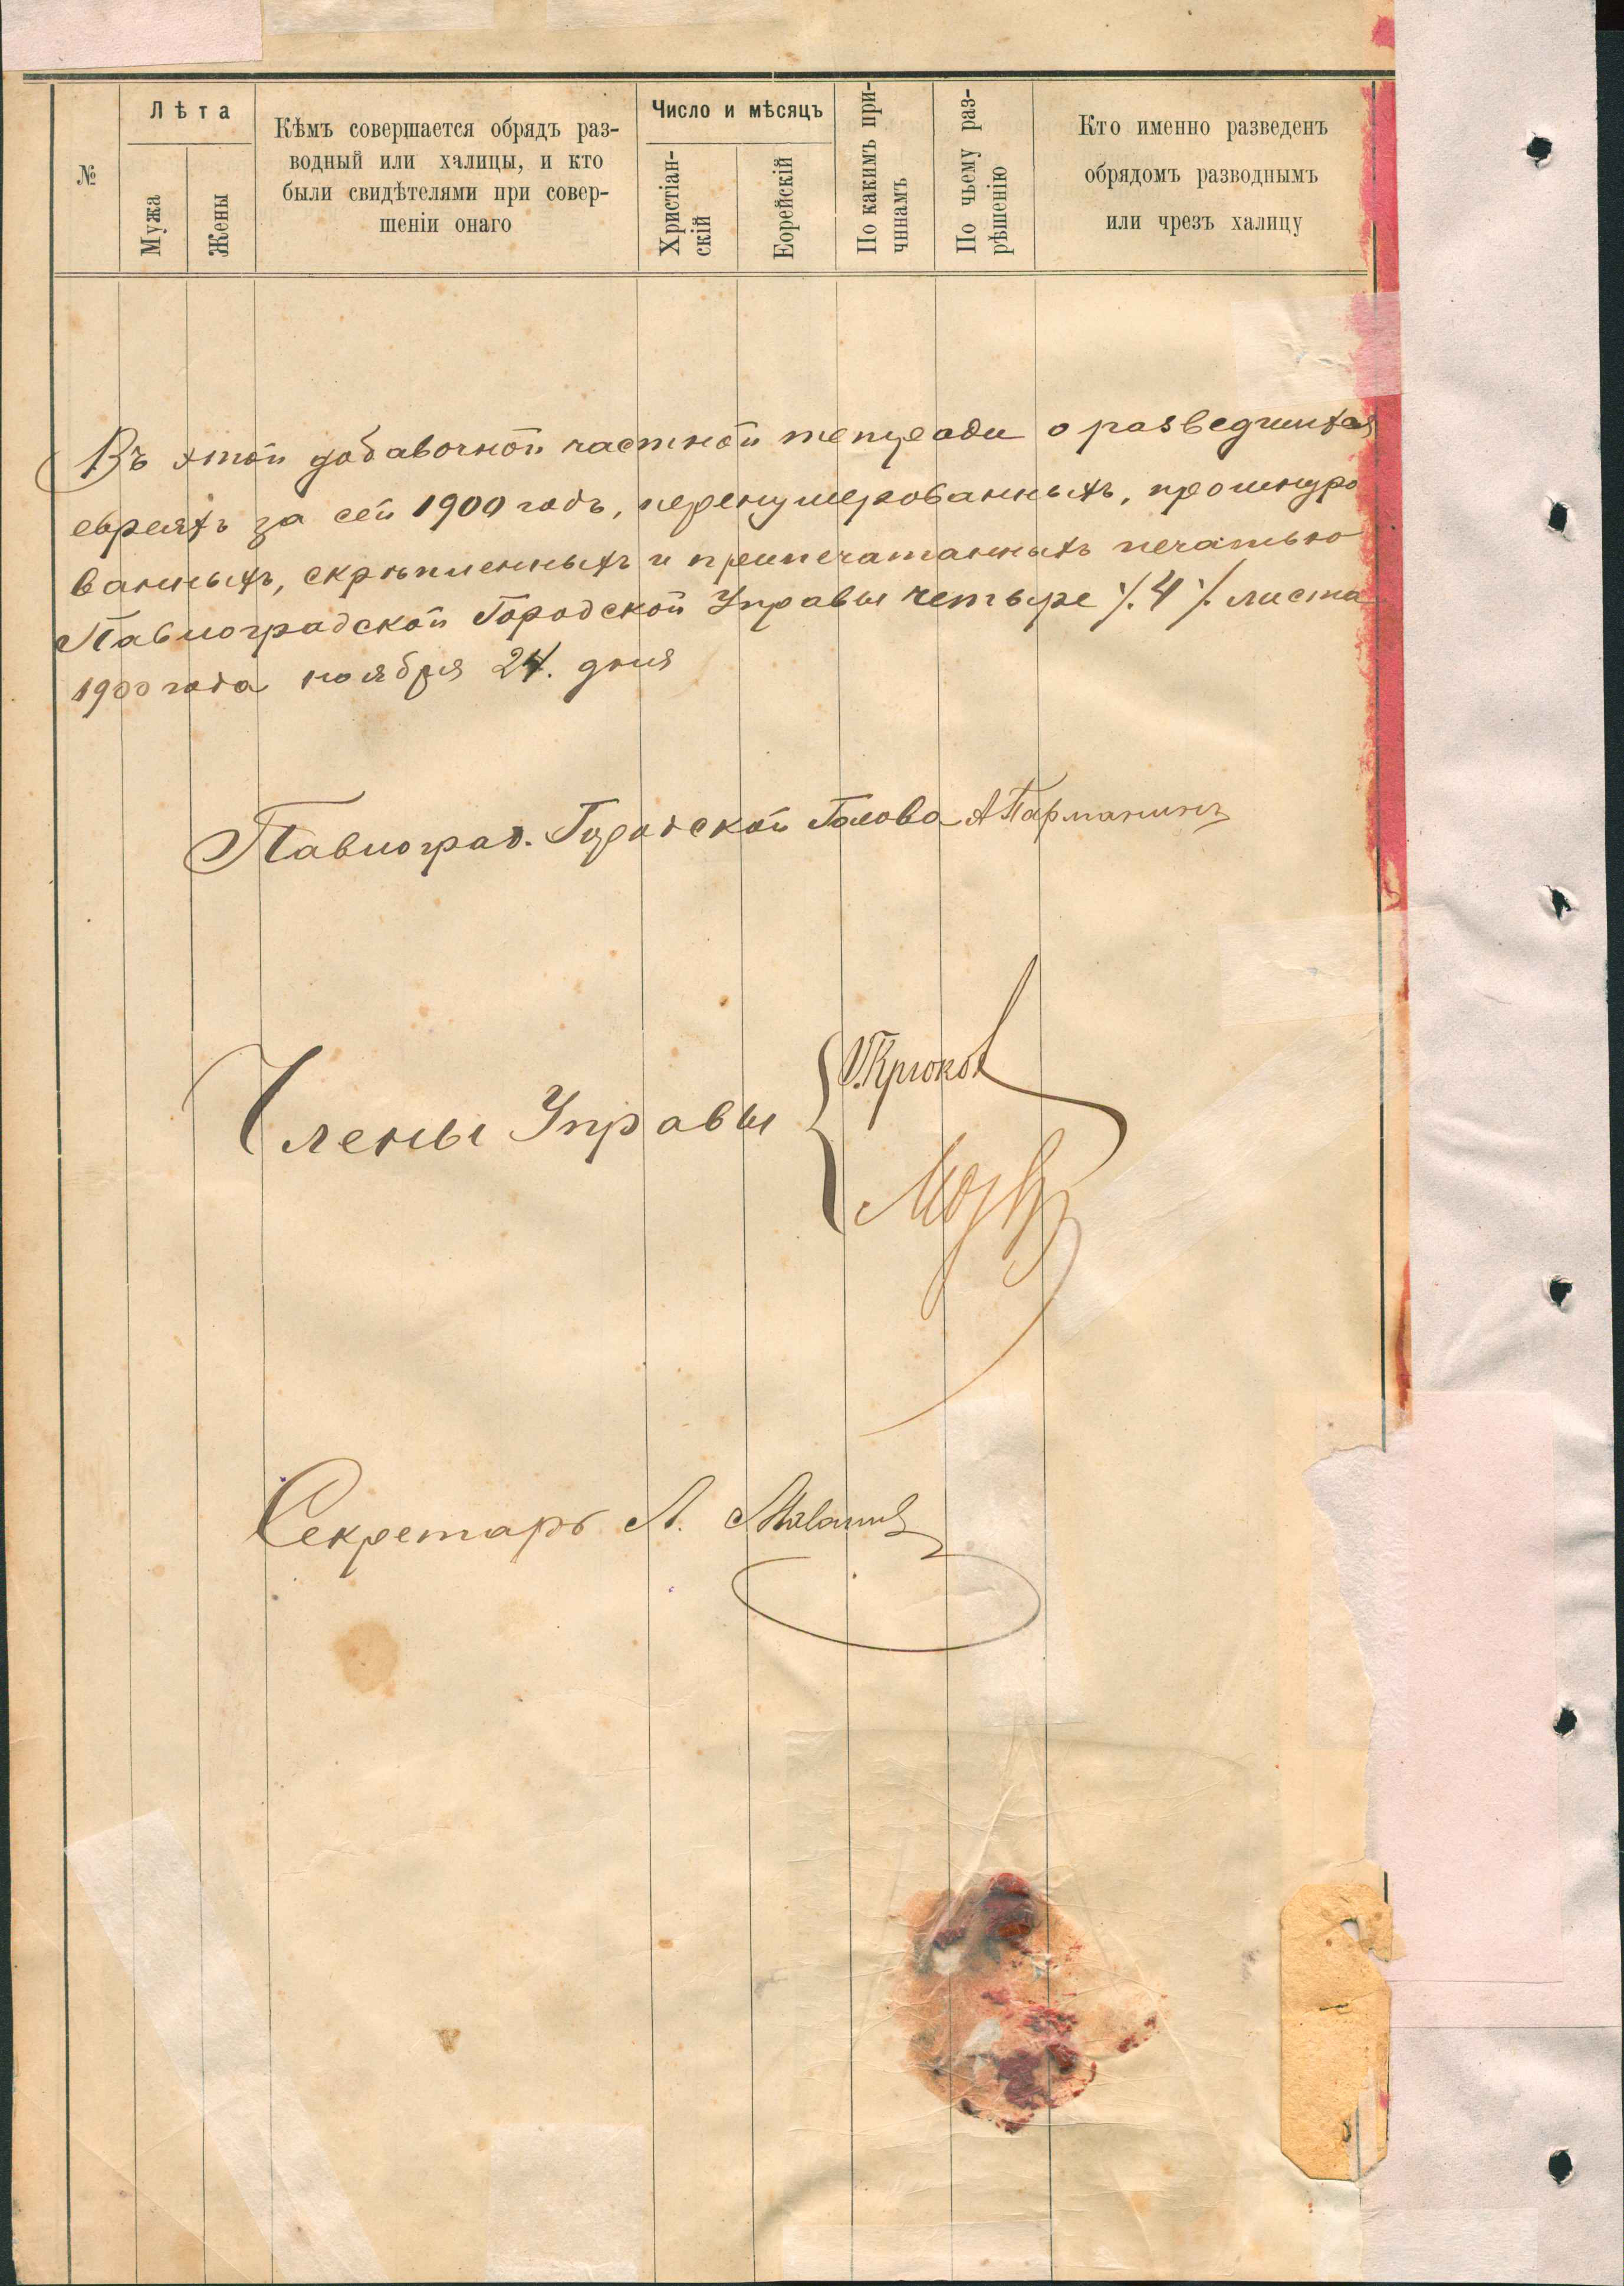 №
Лѣта
Мужа
Жены
Кѣмъ совершается обрядъ раз-
водный или халицы, и кто
были свидѣтелями при совер-
шеніи онаго
Число и мѣсяцъ
Христіан-
скій
Еврейскій
По какимъ при-
чинамъ
По чьему раз-
рѣшенію
Кто именно разведенъ
обрядомъ разводнымъ
или чрезъ халицу
Въ этой добавочной частной тетради о разведшихся
евреяхъ за сей 1900 годъ, перенумерованныхъ, прошнуро
ванныхъ, скрѣпленныхъ и припечатанныхъ печатью
Павлоградской Городской Управы четыре ٪ 4 ٪ листа
1900 года ноября 24. дня
Павлоград. Городской Голова А
Члены Управы
Крюков
Секретарь А.